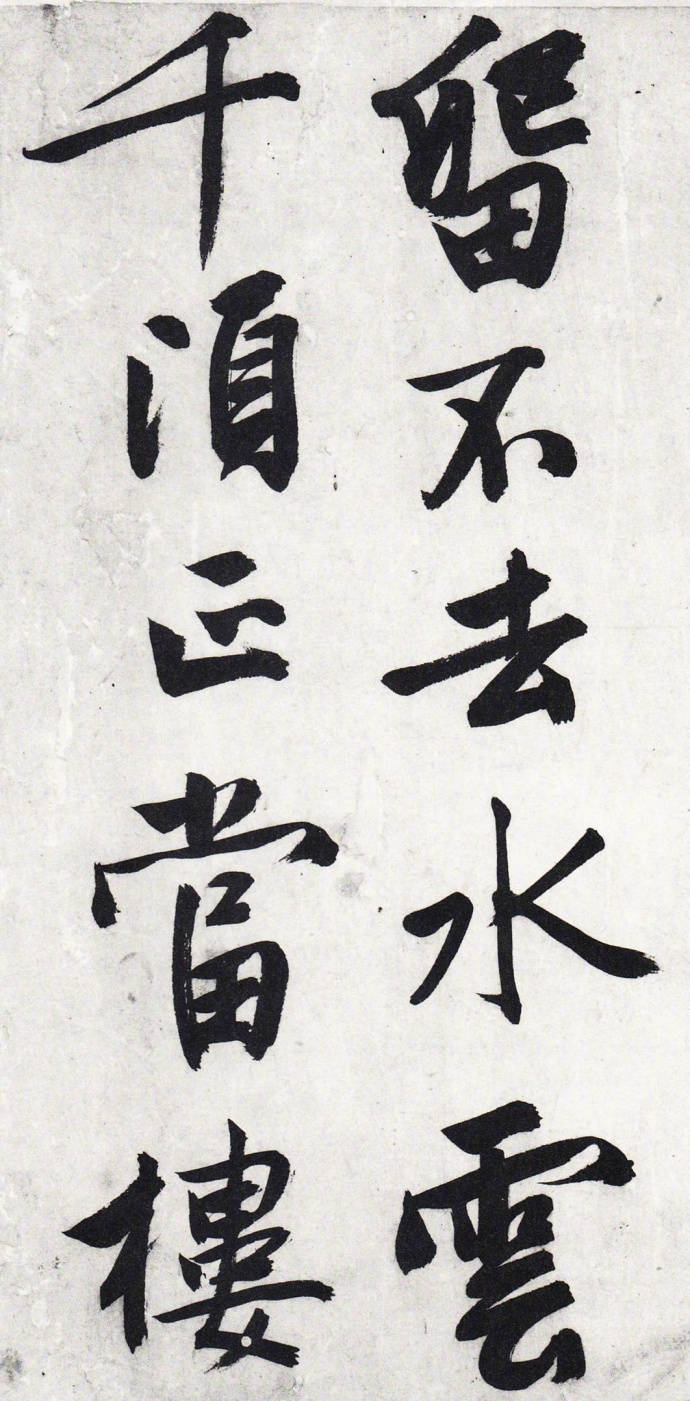 留不去水雲
千頃正當樓